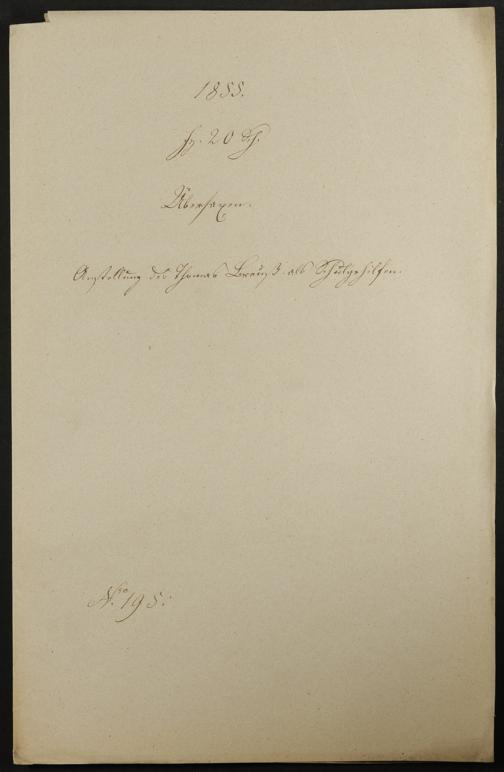 1855.
fz. 20 Sch.
Übersaxen.
Anstellung des Thomas Breuß als Schulgehilfen.
Nro 195: